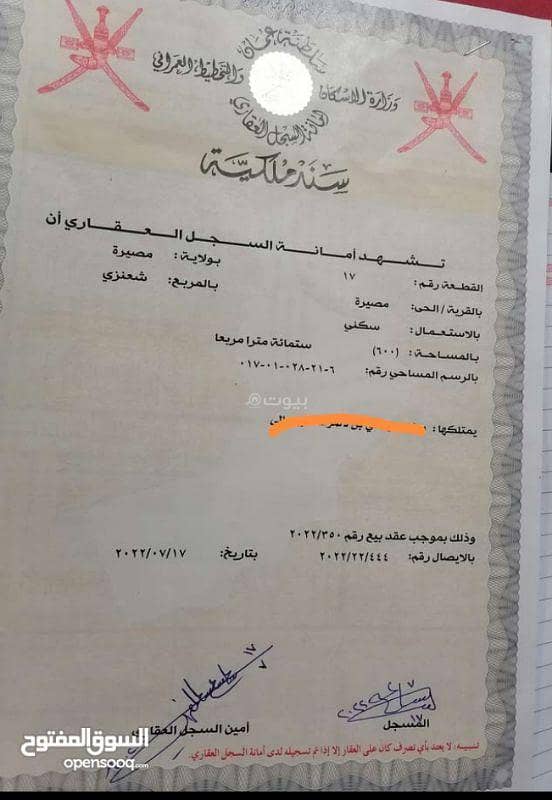 سلطنة عمان
وزارة الاسكان والتخطيط العمراني
أمانة السجل العقاري
سند ملكية
تشهد أمانة السجل العقاري أن
القطعة رقم: ١٧ بولاية: مصيرة
بالقرية / الحى: مصيرة بالمربع: شعنزي
بالاستعمال: سكني
بالمساحة: (٦٠٠) ستمائة مترا مربعا
بالرسم المساحي رقم: ٦-٢١-٠٢٨-٠١-٠١٧
بيوت
يمتلكها:
وذلك بموجب عقد بيع رقم ٢٠٢٢/٣٥٠
بالايصال رقم: ٢٠٢٢/٢٢/٤٤٤ بتاريخ: ٢٠٢٢/٠٧/١٧
المسجل أمين السجل العقاري
تنبيه: لا يعتد بأي تصرف كان على العقار إلا إذا تم تسجيله لدى أمانة السجل العقاري.
السوق المفتوح
opensooq.com